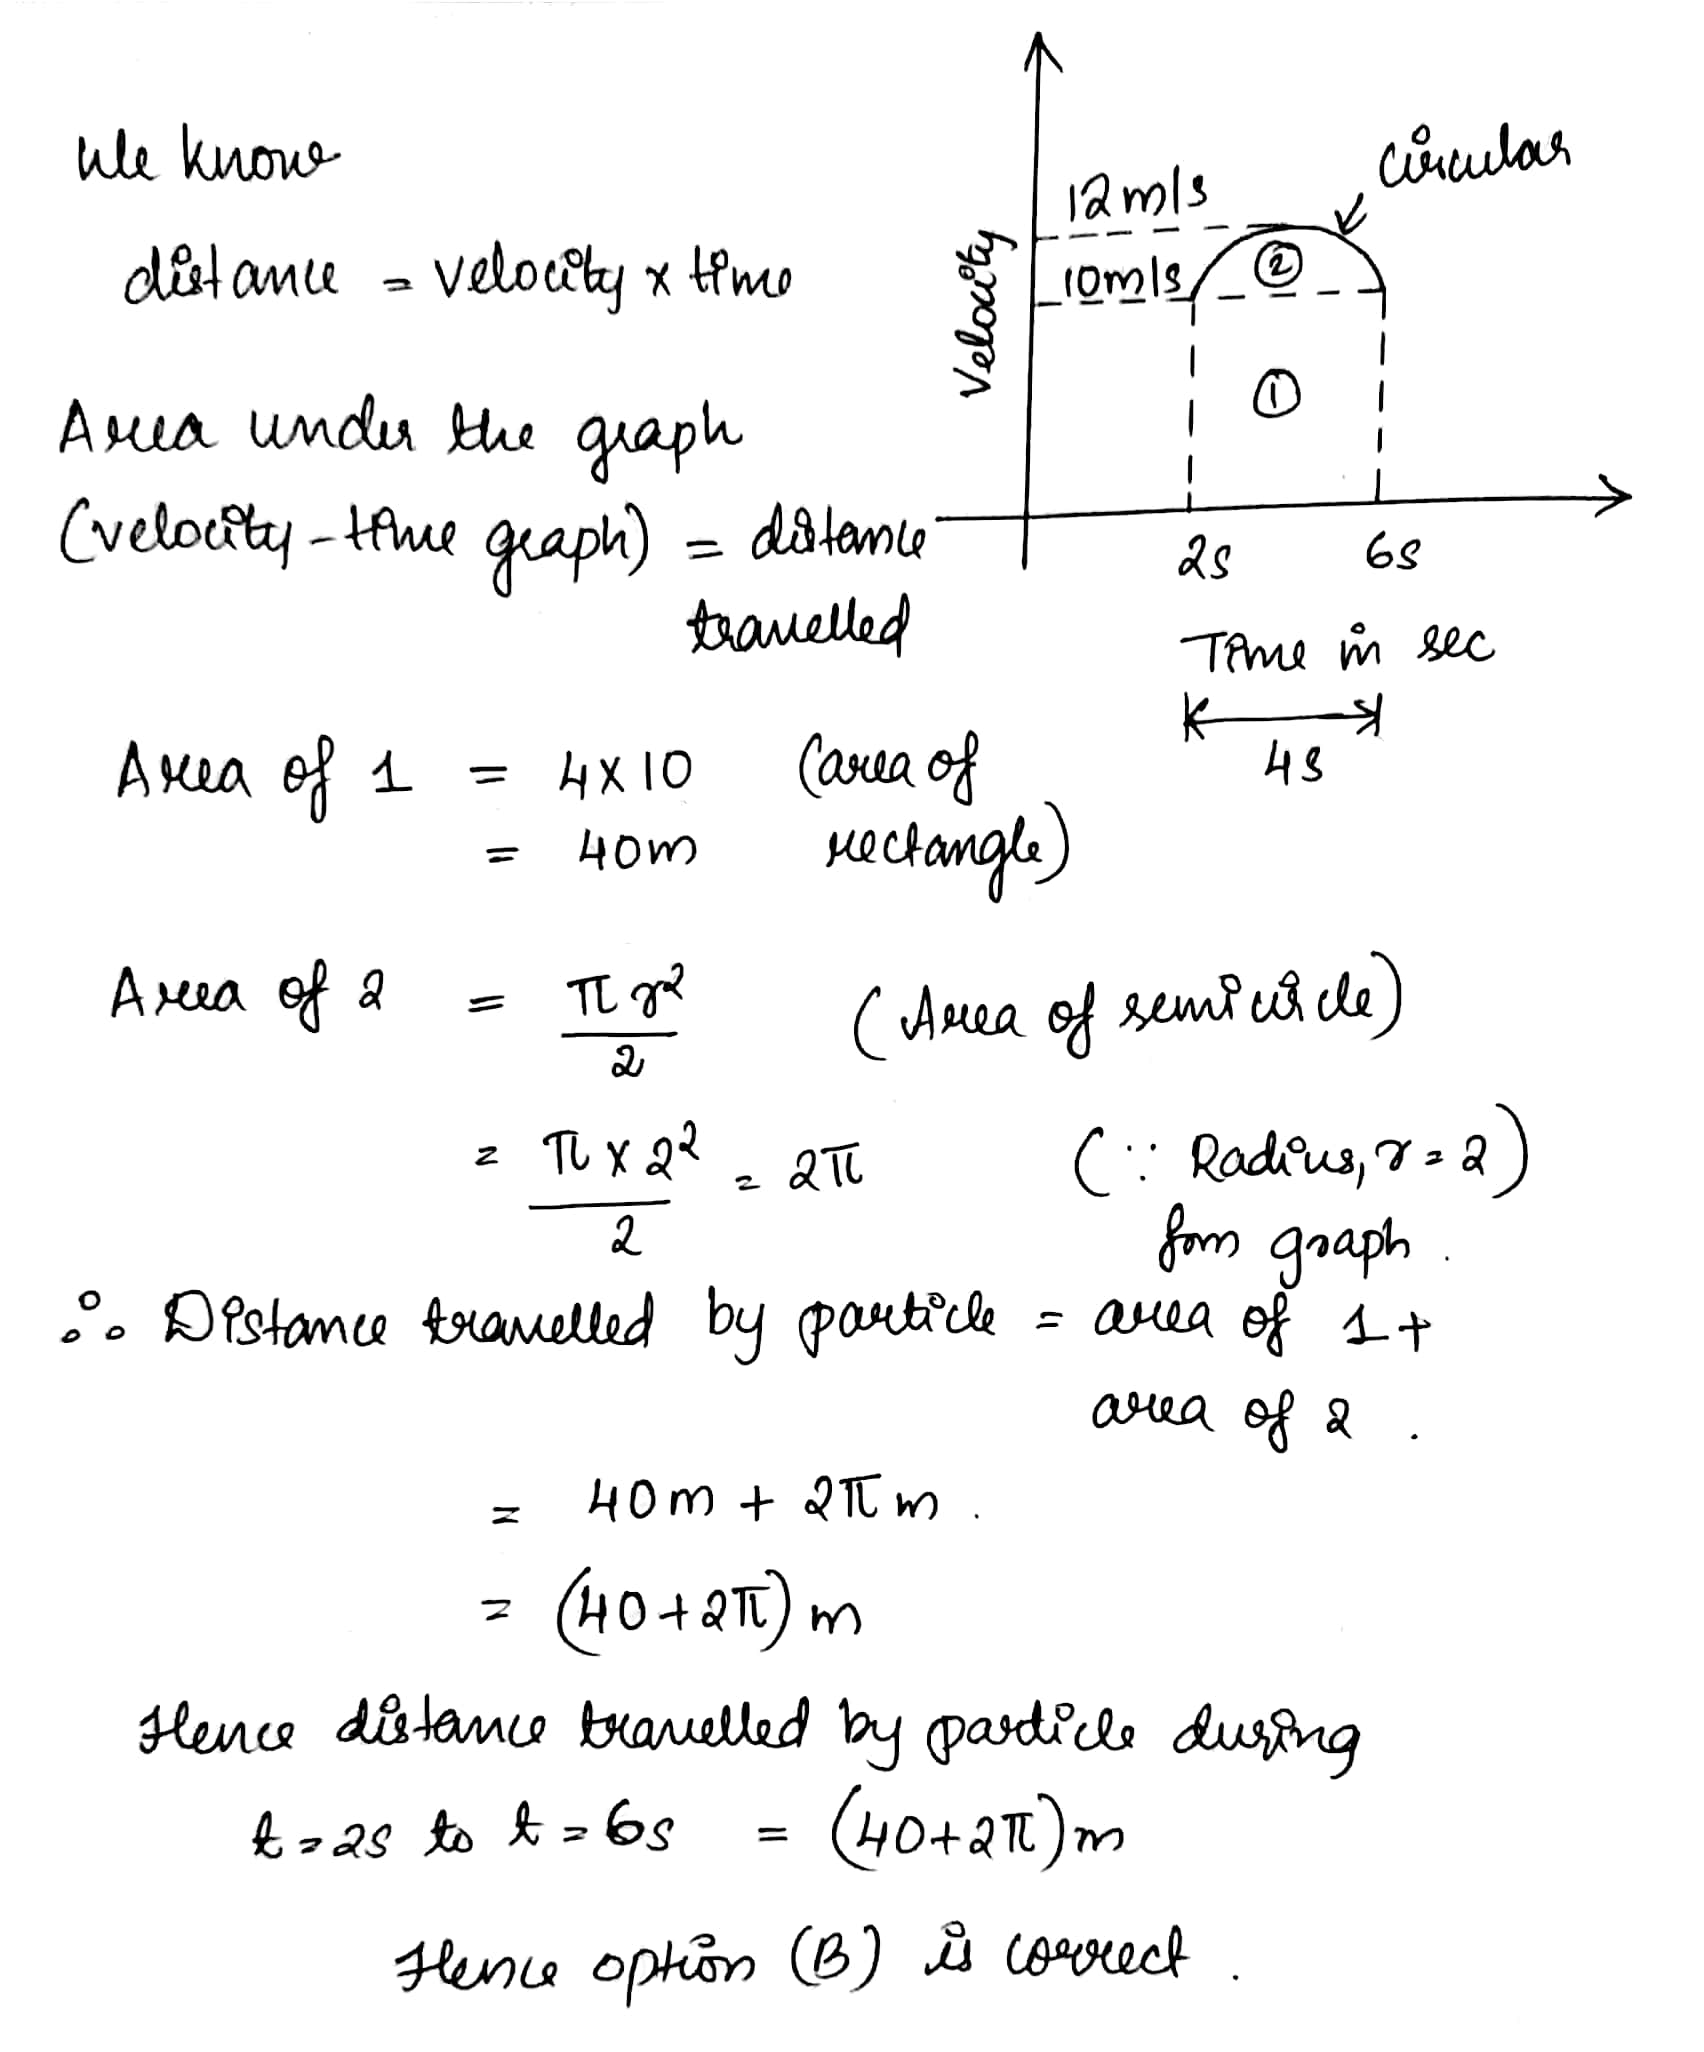 We know
distance = velocity x time
Area under the graph
(velocity-time graph) = distance
travelled
Velocity
12m/s
10m/s
circular
②
①
2s 6s
Time in sec
4s
Area of 1 = 4x10 (area of
= 40m rectangle)
Area of 2 = πr²/2 (Area of semicircle)
= π x 2²/2 = 2π (∵ Radius, r = 2)
from graph.
∴ Distance travelled by particle = area of 1 +
area of 2.
= 40m + 2πm.
= (40+2π)m
Hence distance travelled by particle during
t=2s to t=6s = (40+2π)m
Hence option (B) is correct.